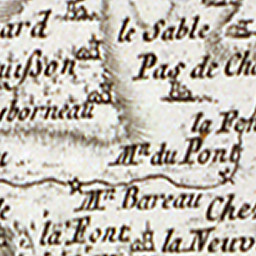 ard
le Sable
uisson
Pas de Cha
yborneau
la Fon
M.n du Pont
M.in Bareau
Che
la Font
la Neuv